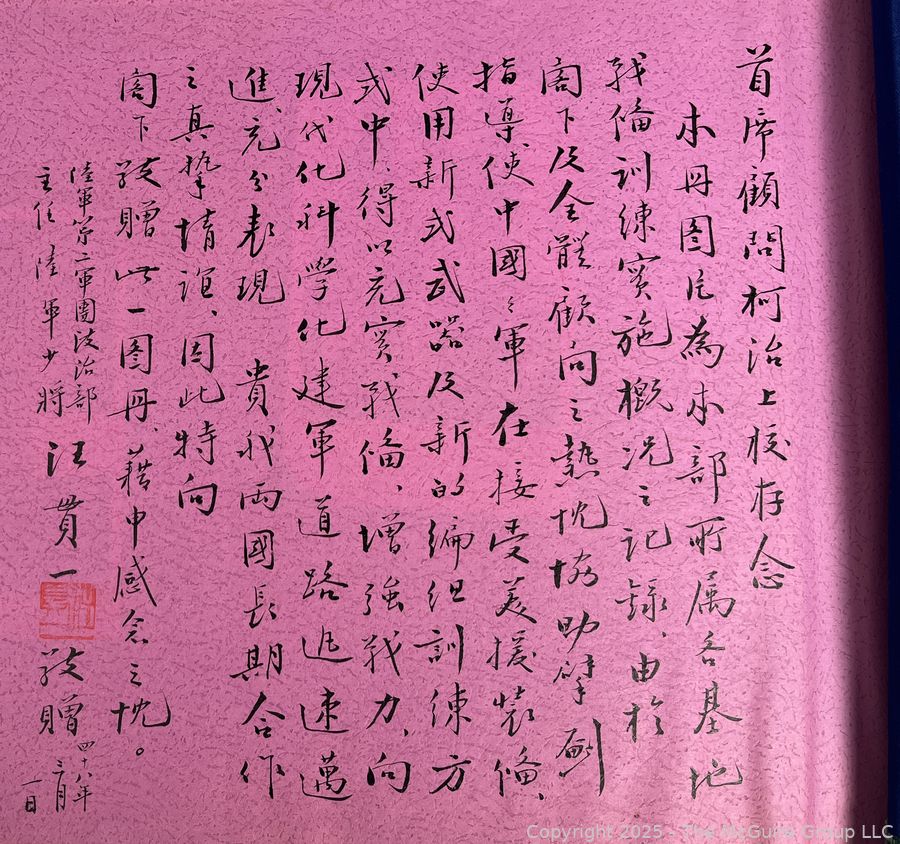 首席顧問柯治上校存念
本冊图片為本部所属各基地
戰俻訓練實施概况之記錄、由於
閣下及全體顧问之熱忱協助擘劃
指導、使中國之軍在接受美援裝俻、
使用新式武器及新的編组訓練方
式中、得以充實戰俻、增強戰力、向
現代化科学化建軍道路迅速邁
進、充分表現 貴我两國長期合作
之真摯情誼、因此特向
閣下敬贈此一图冊、藉申感念之忱。
陸軍第二軍團政治部
主任 陸軍少將 汪貫一 敬贈 四十八年三月一日
Copyright 2025 - The McGuire Group LLC